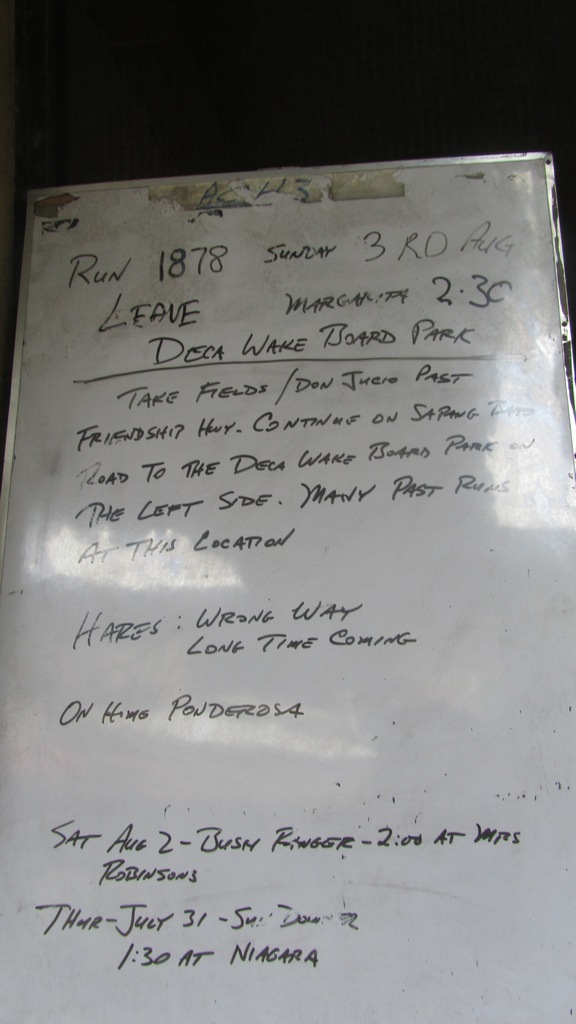 ACH3
RUN 1878 SUNDAY 3RD AUG
LEAVE MARGARITA 2.30
DECA WAKE BOARD PARK
TAKE FIELDS / DON JUCIO PAST
FRIENDSHIP HWY. CONTINUE ON SAPANG BATO
ROAD TO THE DECA WAKE BOARD PARK ON
THE LEFT SIDE. MANY PAST RUNS
AT THIS LOCATION
HARES: WRONG WAY
LONG TIME COMING
ON HOME PONDEROSA
SAT AUG 2 - BUSH RINGER - 2:00 AT MRS
ROBINSONS
THUR - JULY 31 -
1:30 AT NIAGARA